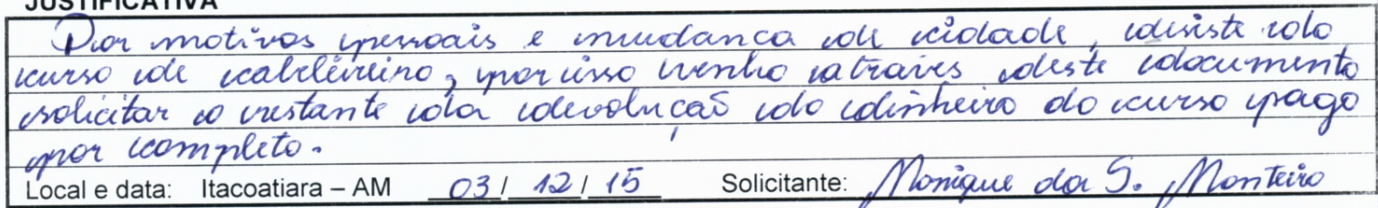 JUSTIFICATIVA
Por motivos pessoais e mudanca de cidade, desiste do
curso de cabeleireiro, por isso venho atraves deste documento
solicitar o restante da devolução do dinheiro do curso pago
por completo.
Local e data: Itacoatiara – AM 03/ 12/ 15 Solicitante: Monique da S. Monteiro